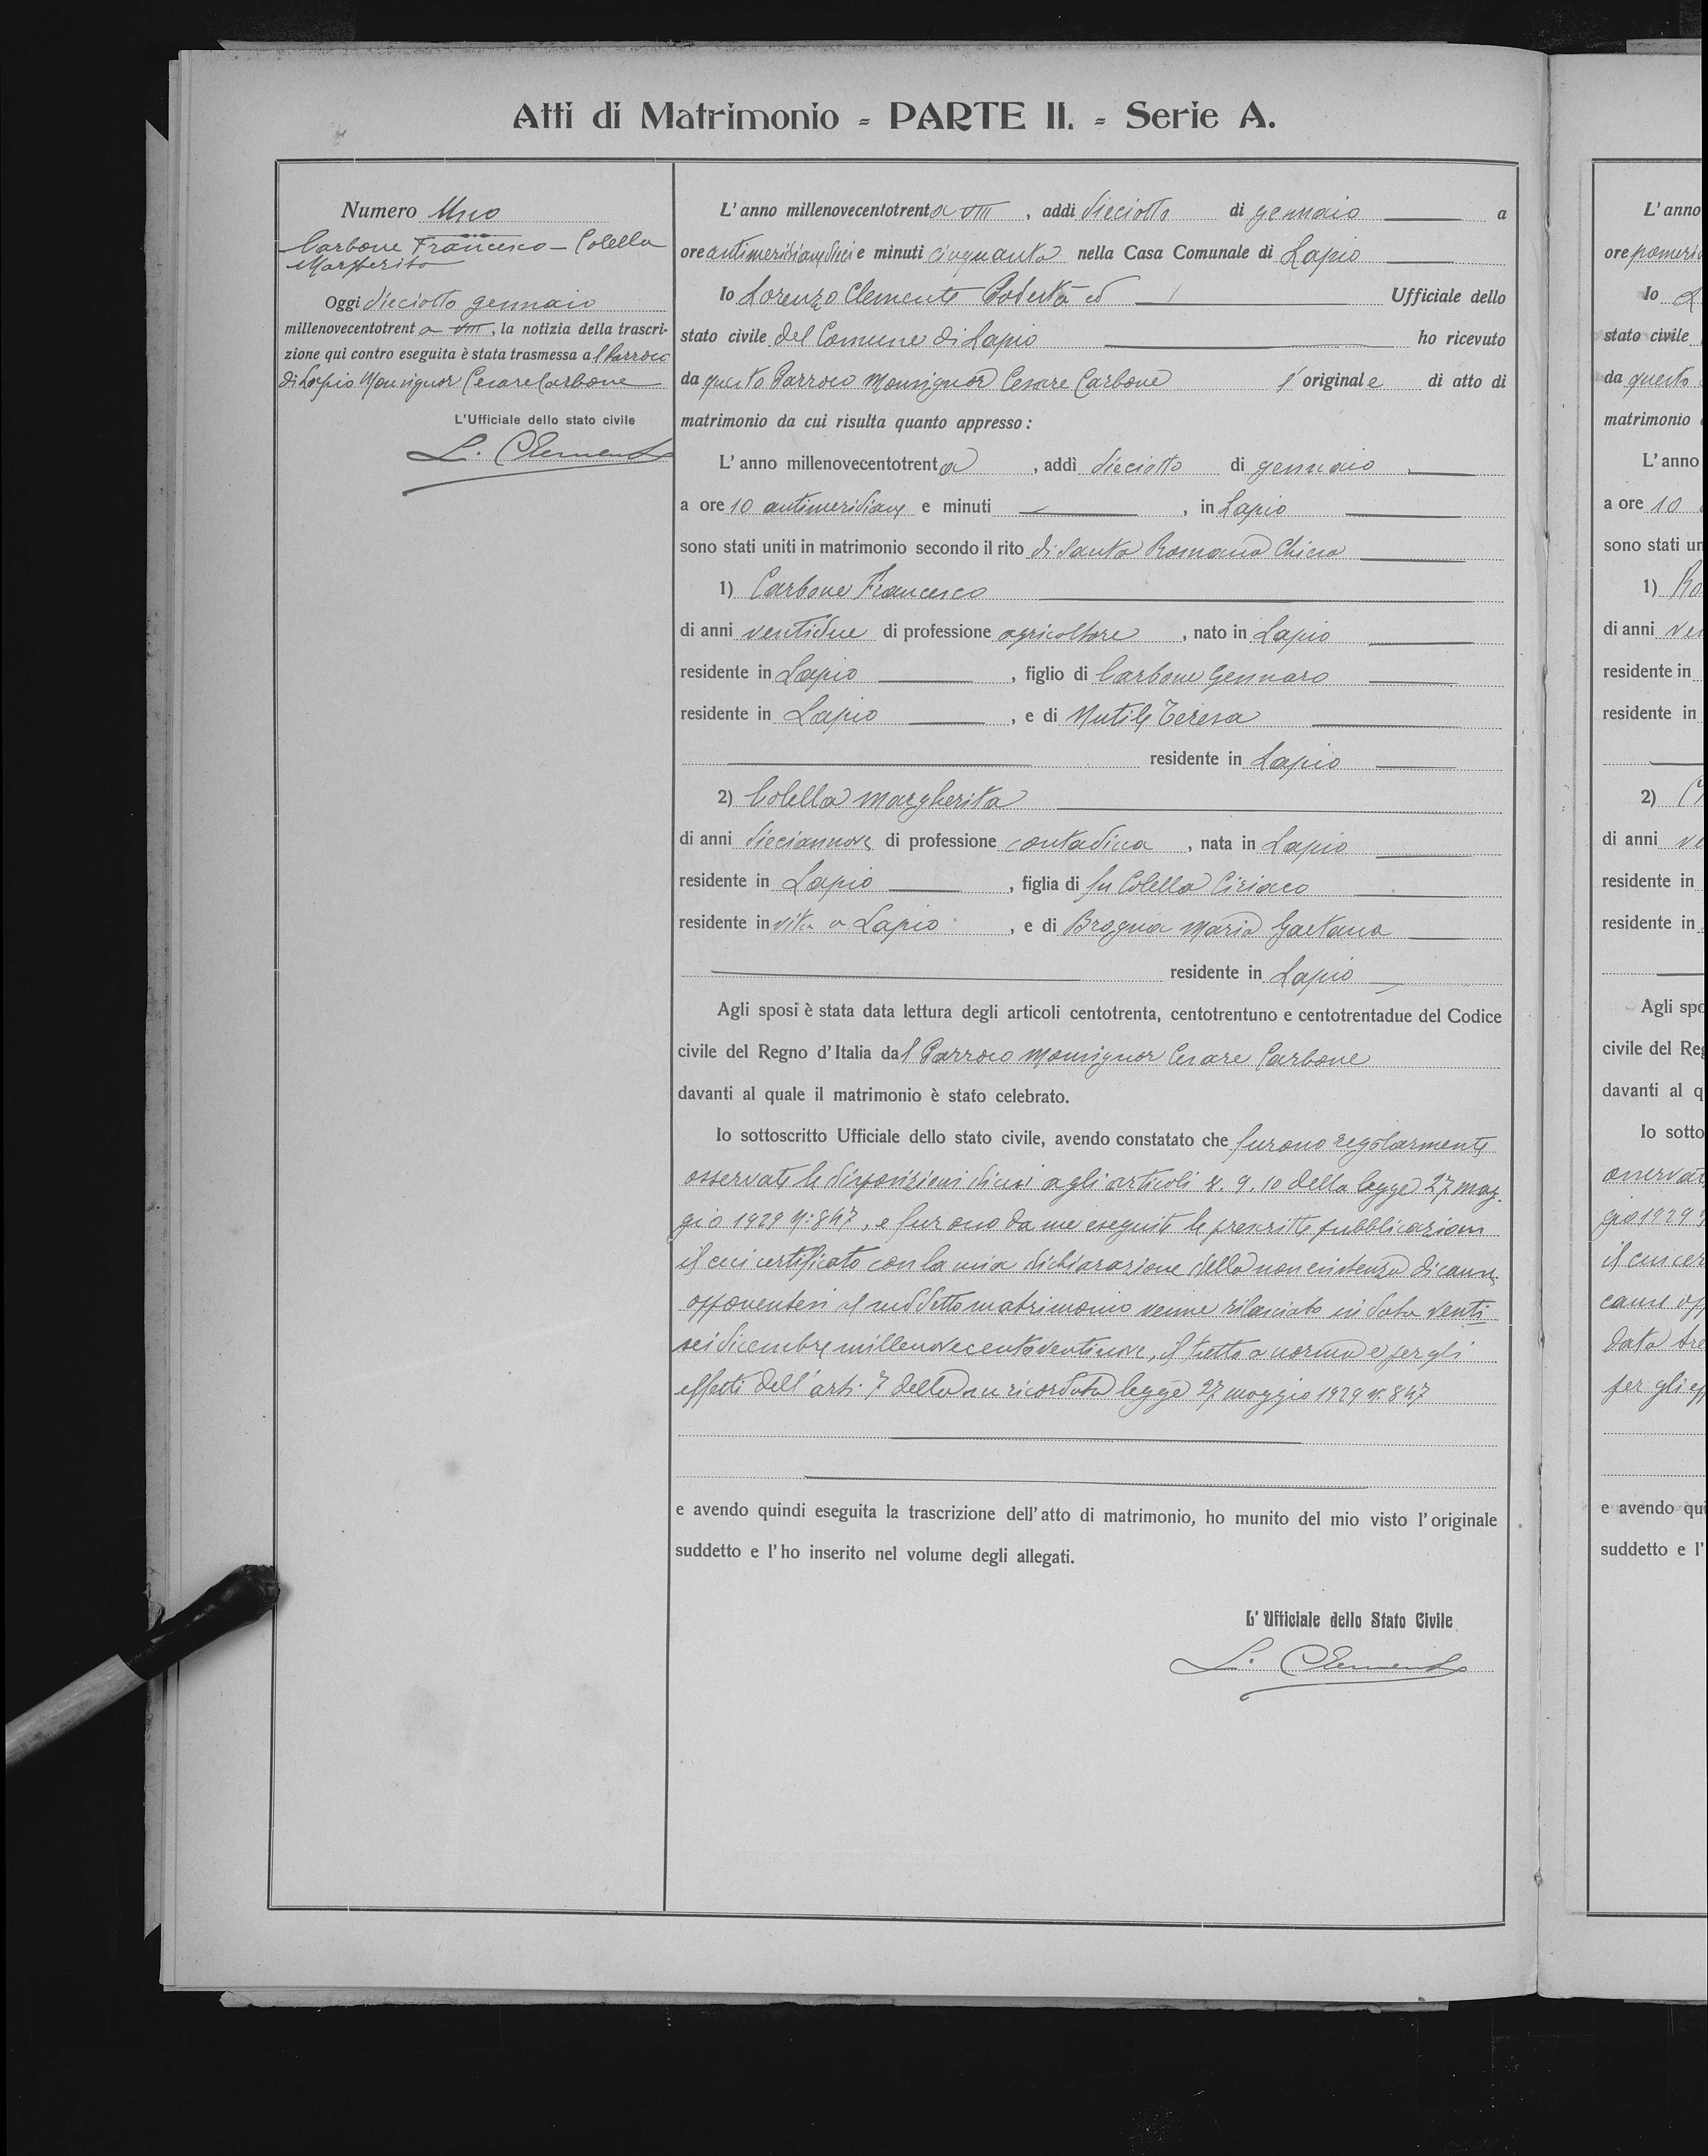 Atti di Matrimonio - PARTE II. - Serie A.
Numero Uno
Carbone Francesco - Colella
Margherita
Oggi dieciotto gennaio
millenovecentotrent a VIII, la notizia della trascri-
zione qui contro eseguita è stata trasmessa al Parroco
di Lapio Monsignor Cesare Carbone
L'Ufficiale dello stato civile
L. Clemente
L'anno millenovecentotrenta VIII, addì dieciotto di gennaio a
ore antimeridiane dieci e minuti cinquanta nella Casa Comunale di Lapio
Io Lorenzo Clemente Podestà ed Ufficiale dello
stato civile del Comune di Lapio ho ricevuto
da questo Parroco Monsignor Cesare Carbone l'originale di atto di
matrimonio da cui risulta quanto appresso:
L'anno millenovecentotrenta, addì dieciotto di gennaio
a ore 10 antimeridiane e minuti , in Lapio
sono stati uniti in matrimonio secondo il rito di Santa Romana Chiesa
1) Carbone Francesco
di anni ventidue di professione agricoltore, nato in Lapio
residente in Lapio, figlio di Carbone Gennaro
residente in Lapio, e di Nutile Teresa
residente in Lapio
2) Colella Margherita
di anni dieciannove di professione contadina, nata in Lapio
residente in Lapio, figlia di fu Colella Ciriaco
residente in vita a Lapio, e di Brogna Maria Gaetana
residente in Lapio
Agli sposi è stata data lettura degli articoli centotrenta, centotrentuno e centotrentadue del Codice
civile del Regno d'Italia dal Parroco Monsignor Cesare Carbone
davanti al quale il matrimonio è stato celebrato.
Io sottoscritto Ufficiale dello stato civile, avendo constatato che furono regolarmente
osservate le disposizioni di cui agli articoli 8. 9. 10 della legge 27 mag-
gio 1929 N: 847, e furono da me eseguite le prescritte pubblicazioni
il cui certificato con la mia dichiarazione della non esistenza di cause
opponentesi al suddetto matrimonio venne rilasciato in data venti
sei dicembre millenovecentoventinove, il tutto a norma e per gli
effetti dell'art. 7 della su ricordata legge 27 maggio 1929 N. 847
e avendo quindi eseguita la trascrizione dell'atto di matrimonio, ho munito del mio visto l'originale
suddetto e l'ho inserito nel volume degli allegati.
L'Ufficiale dello Stato Civile
L. Clemente
L'anno
ore pomeri
Io
stato civile
da questo
matrimonio
L'anno
a ore 10
sono stati un
1) Ro
di anni ven
residente in
residente in
2)
di anni ve
residente in
residente in
Agli spo
civile del Reg
davanti al q
Io sotto
osservat
gio 1929
il cui cer
cause opp
data tre
per gli ef
e avendo qui
suddetto e l'